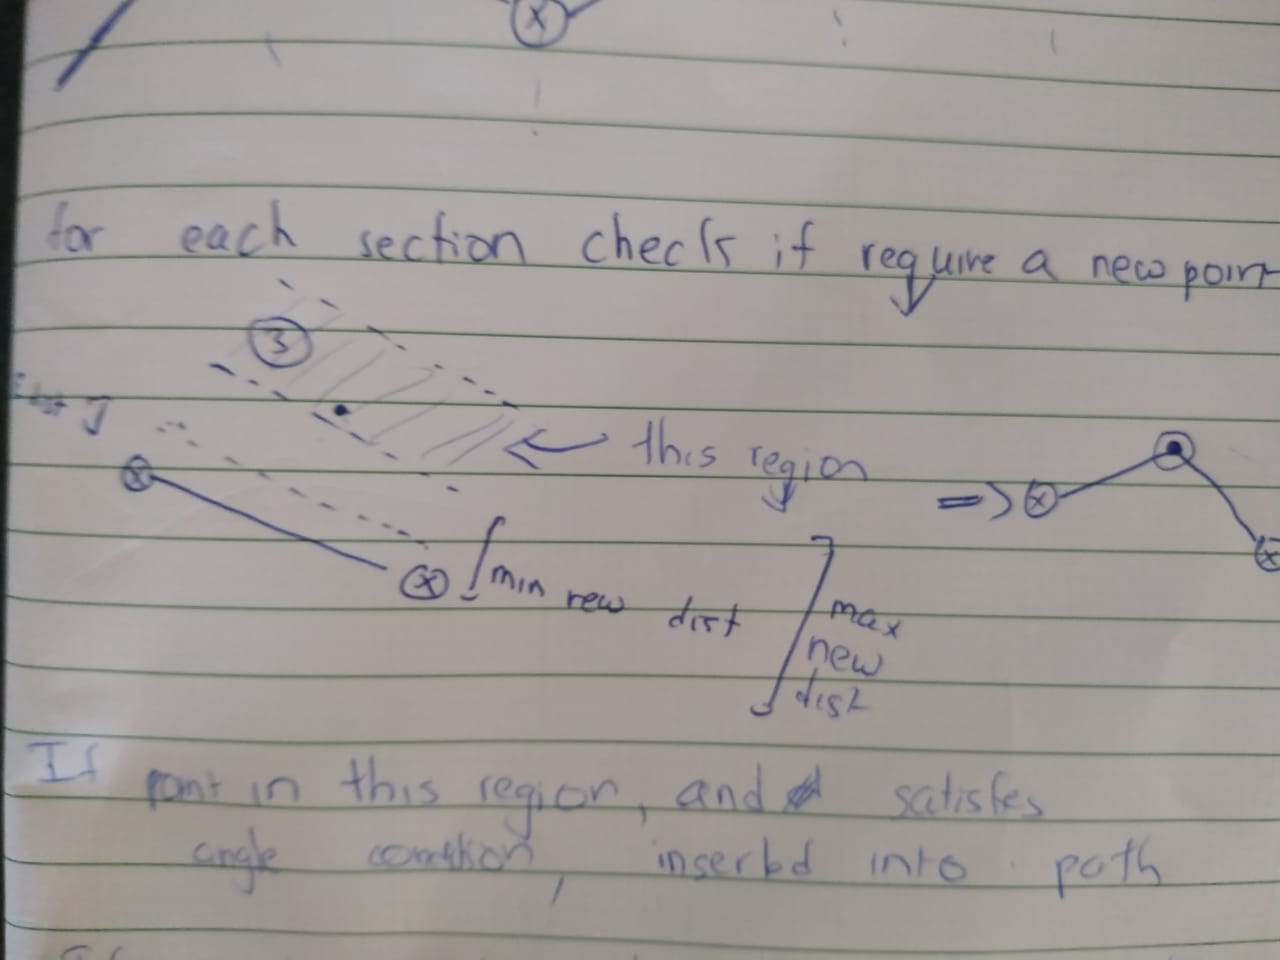 for each section check if require a new point
3
this region
=>
min new dist
max
new
dist
If point in this region, and satisfies
angle condition, inserted into path